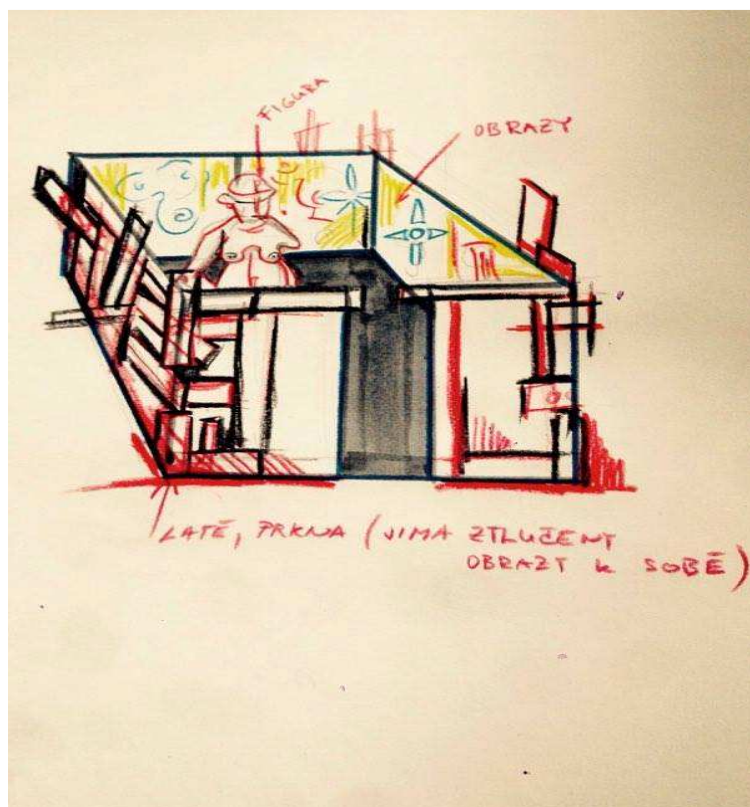 FIGURA
OBRAZY
LATĚ, PRKNA (JIMA ZTLUČENY
OBRAZY K SOBĚ)